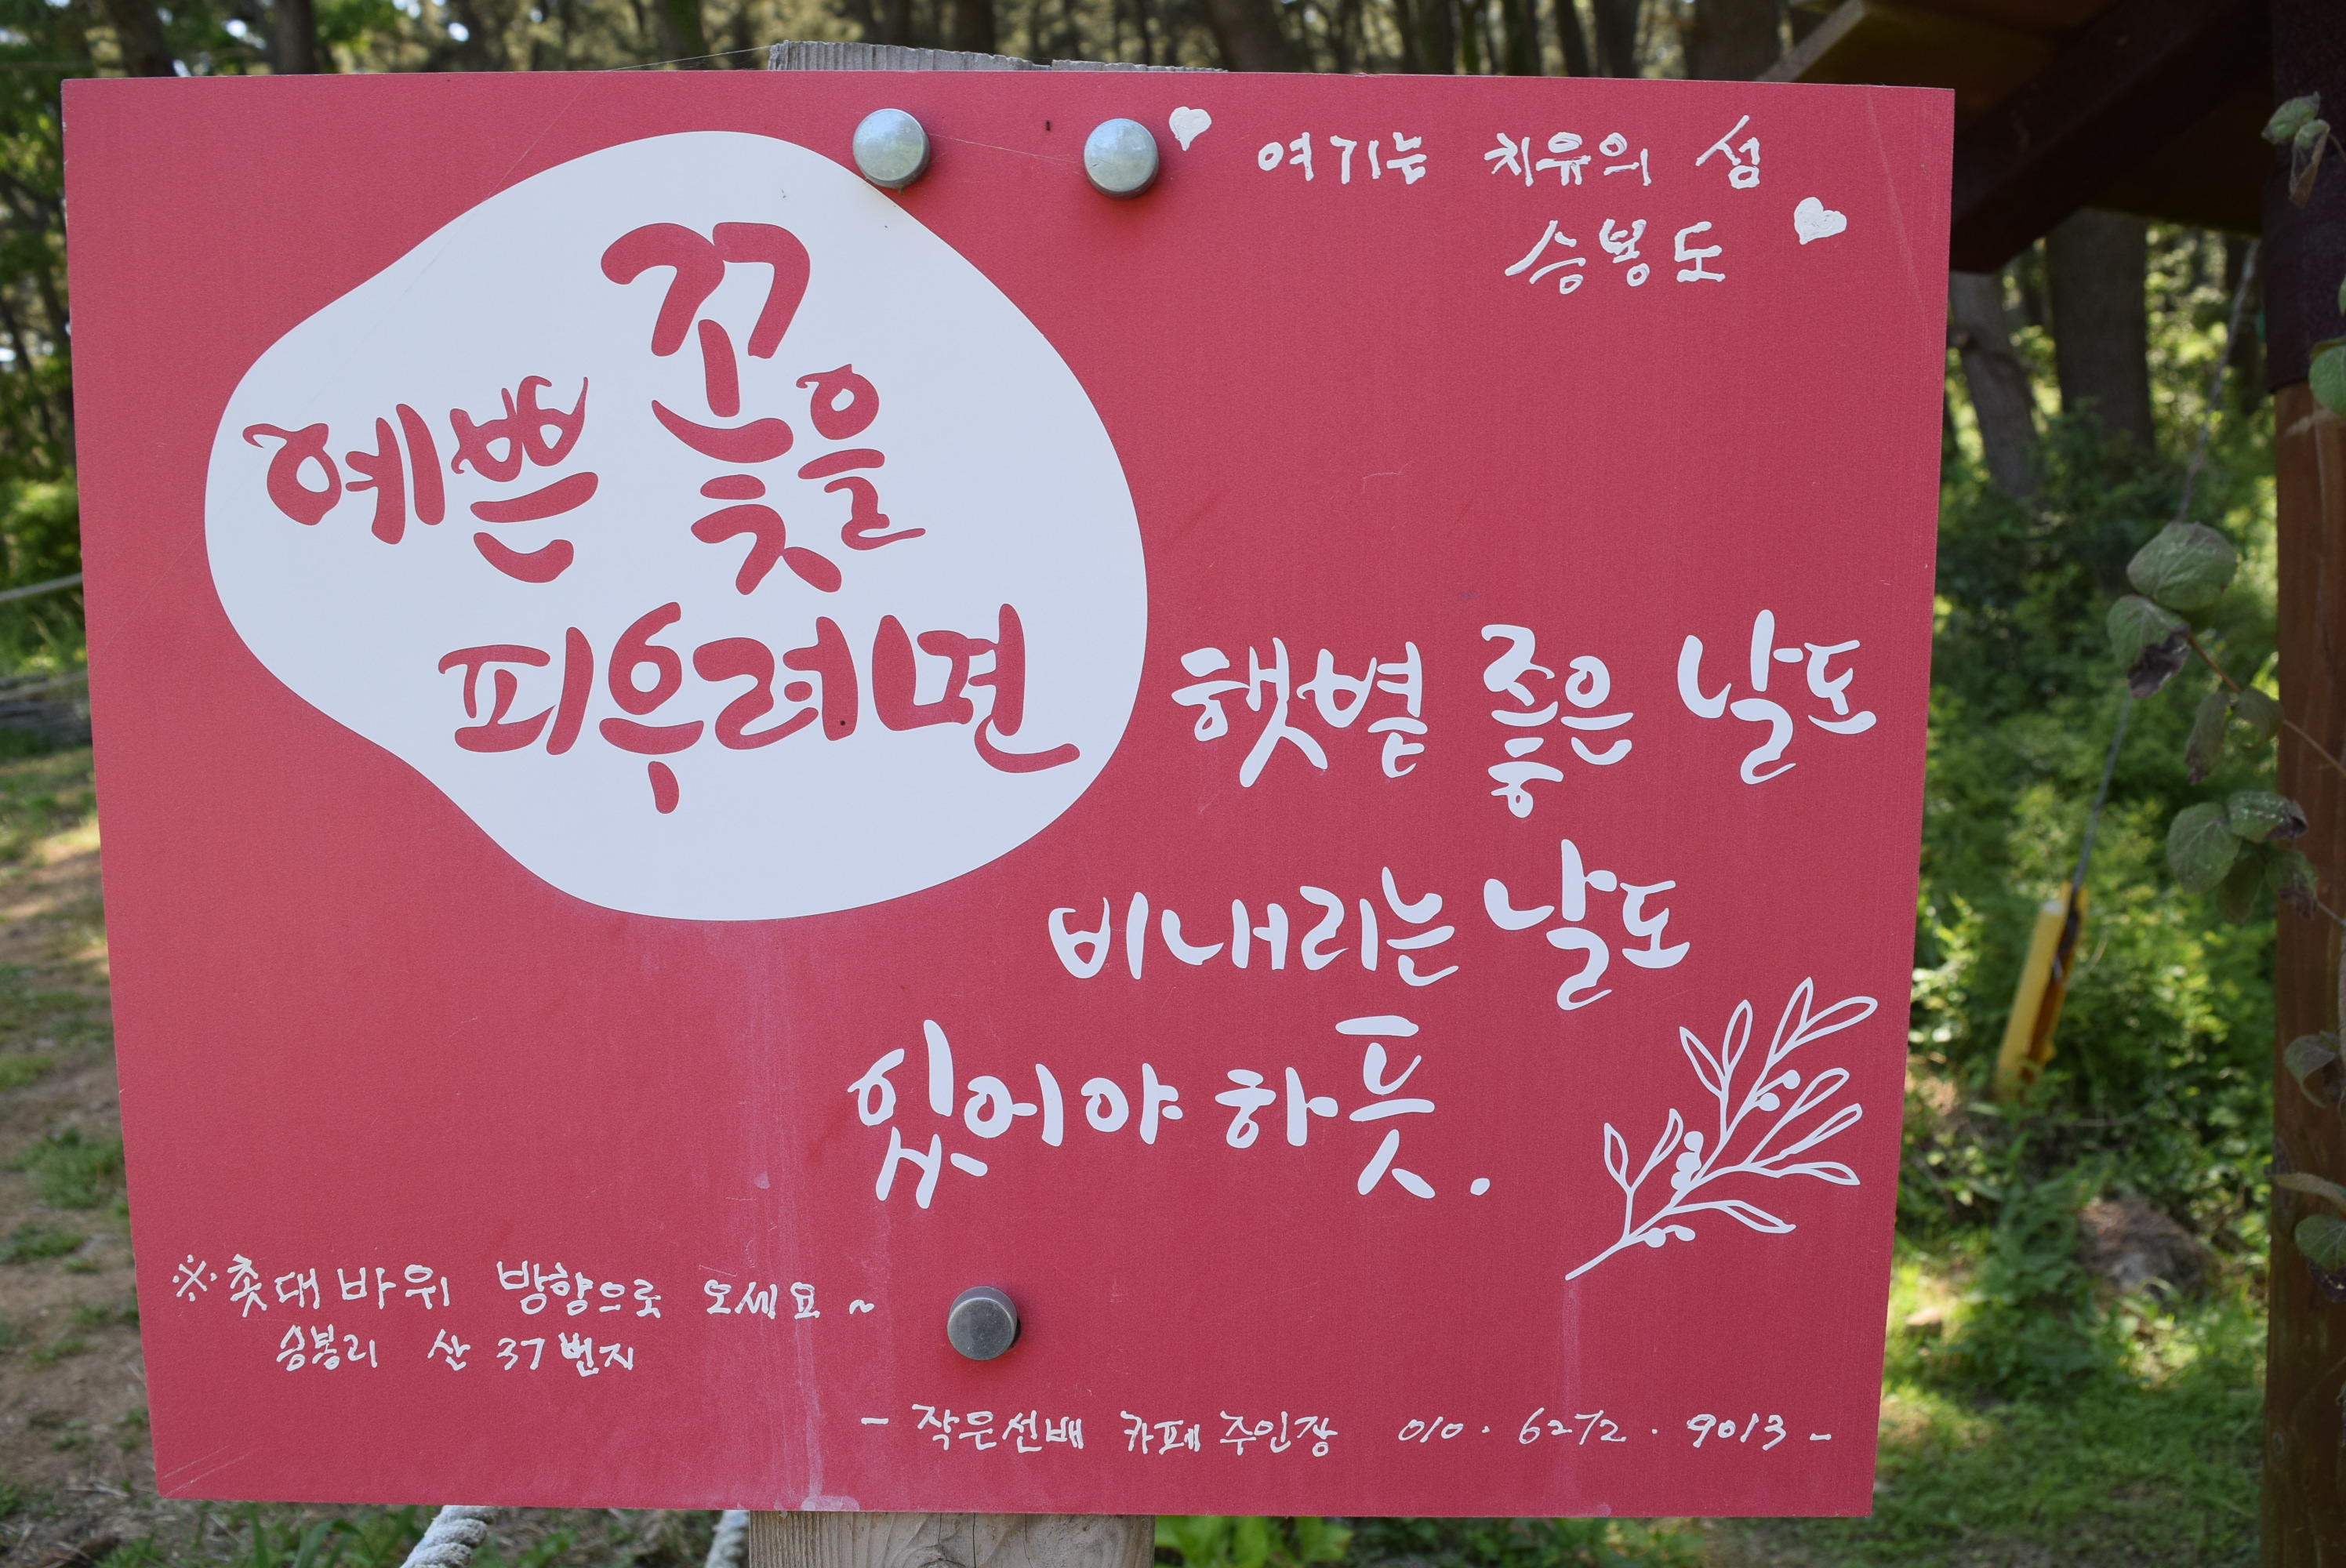 ♥ 여기는 치유의 섬
승봉도 ♥
예쁜 꽃을
피우려면
햇볕 좋은 날도
비내리는 날도
있어야 하듯.
※촛대바위 방향으로 오세요~
승봉리 산 37번지
- 작은선배 카페주인장 010. 6272. 9013 -